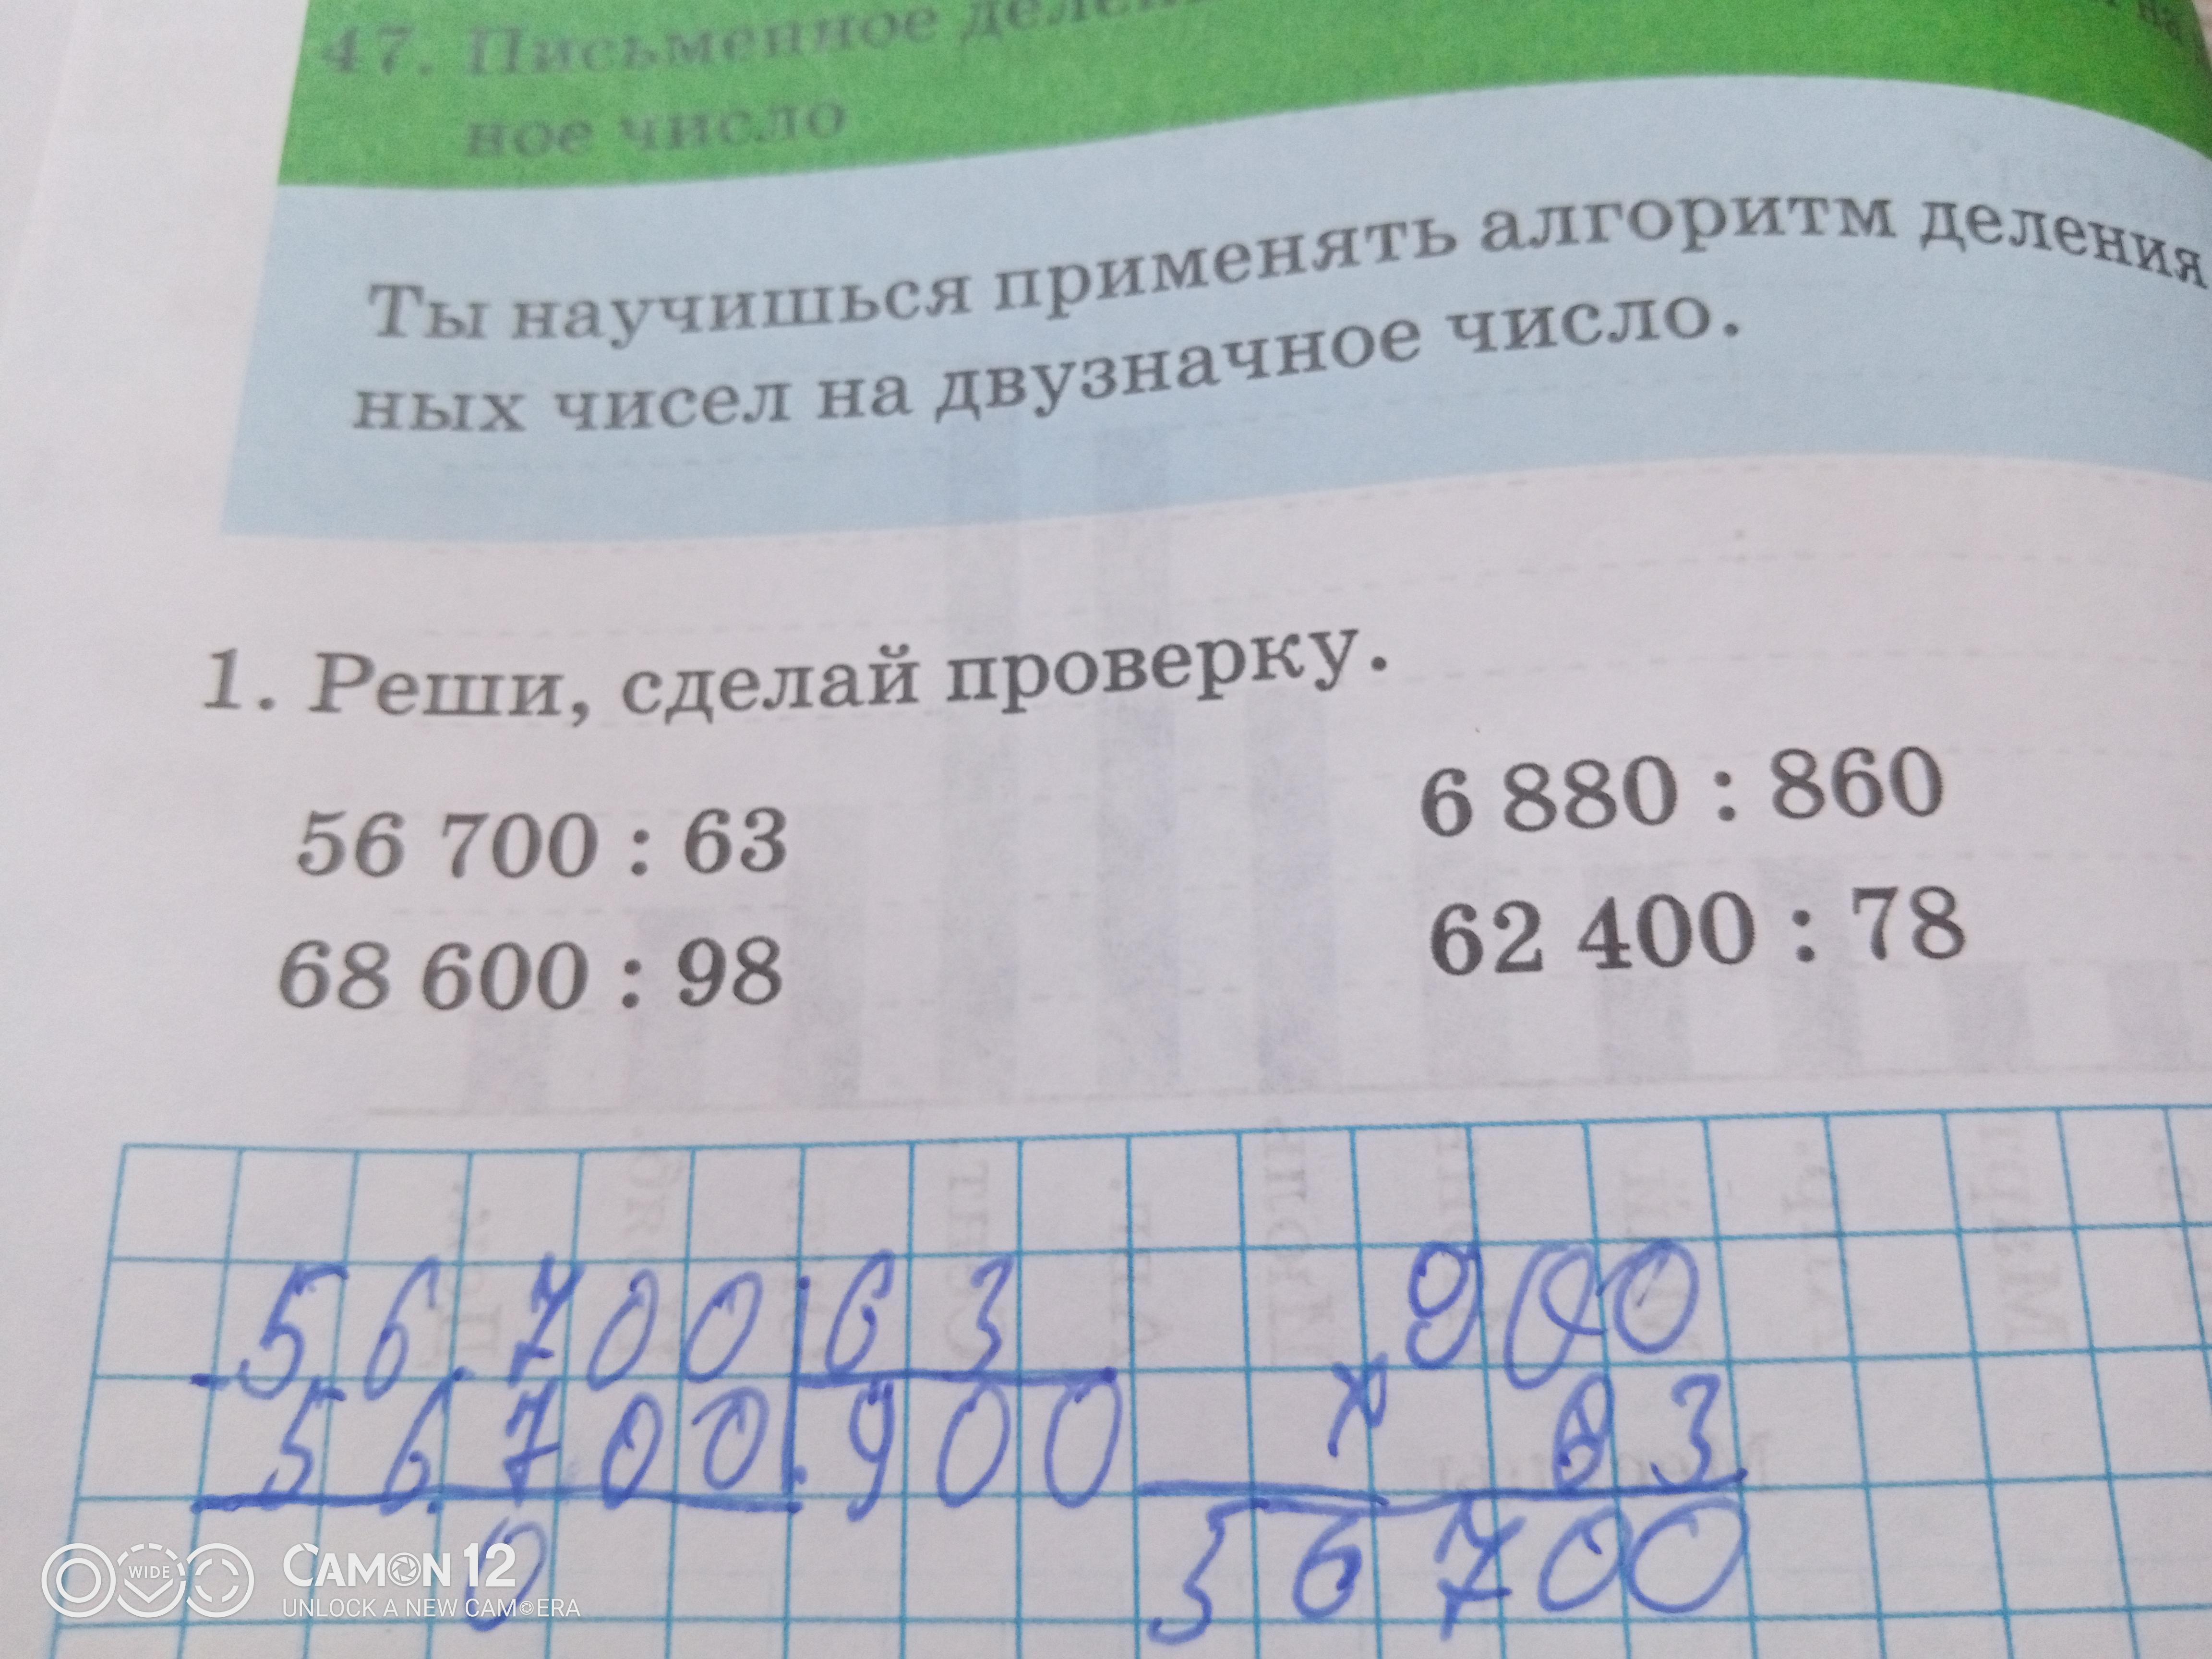 47. Письменное
ное число
Ты научишься применять алгоритм деления
ных чисел на двузначное число.
1. Реши, сделай проверку.
56 700 : 63
6 880 : 860
68 600 : 98
62 400 : 78
56700 63
56700 900
0
900
× 63
56700
WIDE CAMON 12
UNLOCK A NEW CAMERA